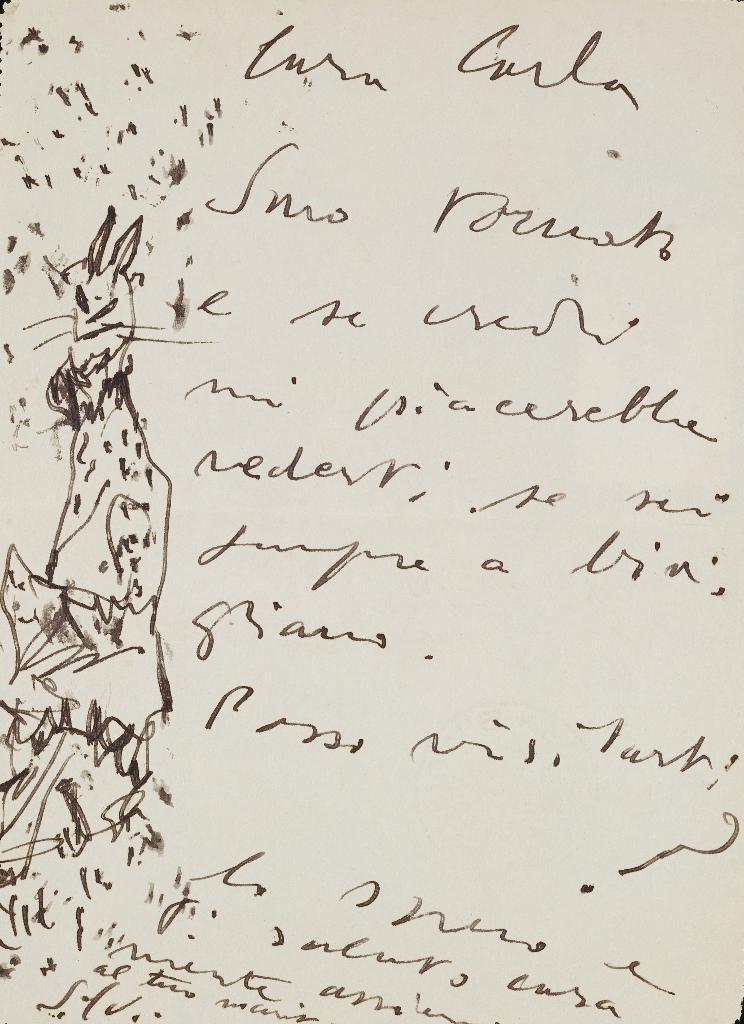 Cara Carla
Sono tornato
e se credi
mi piacerebbe
vederti, se sei
sempre a Bivi,
gliano.
Posso visitarti
?
Lo spero e
ti saluto cara
mente assieme
al tuo marito